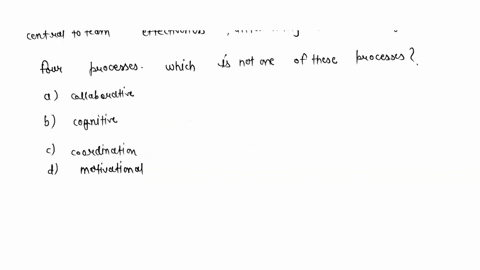 central to team effectiveness
four processes. which is not one of these processes?
a) collaborative
b) cognitive
c) coordination
d) motivational